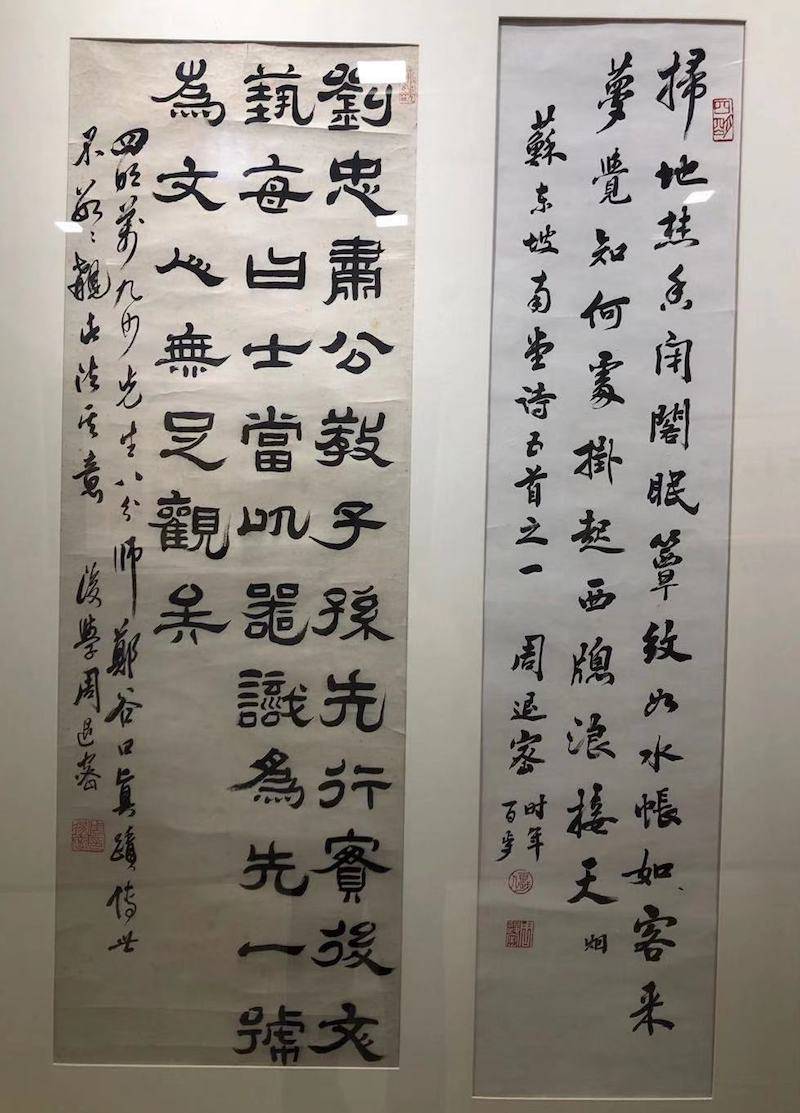 掃地焚香闭閣眠簟紋如水帳如客来
夢覺知何處掛起西牕浪接天 烟
蘇东坡南堂诗五首之一 周退密 时年
百岁
劉忠肅公教子孫先行實後文
藝每曰士當以器識為先一號
為文人無足觀矣
四明萬九沙先生八分師鄭谷口真蹟傳世
不數〻覯此法其意 後學周退密